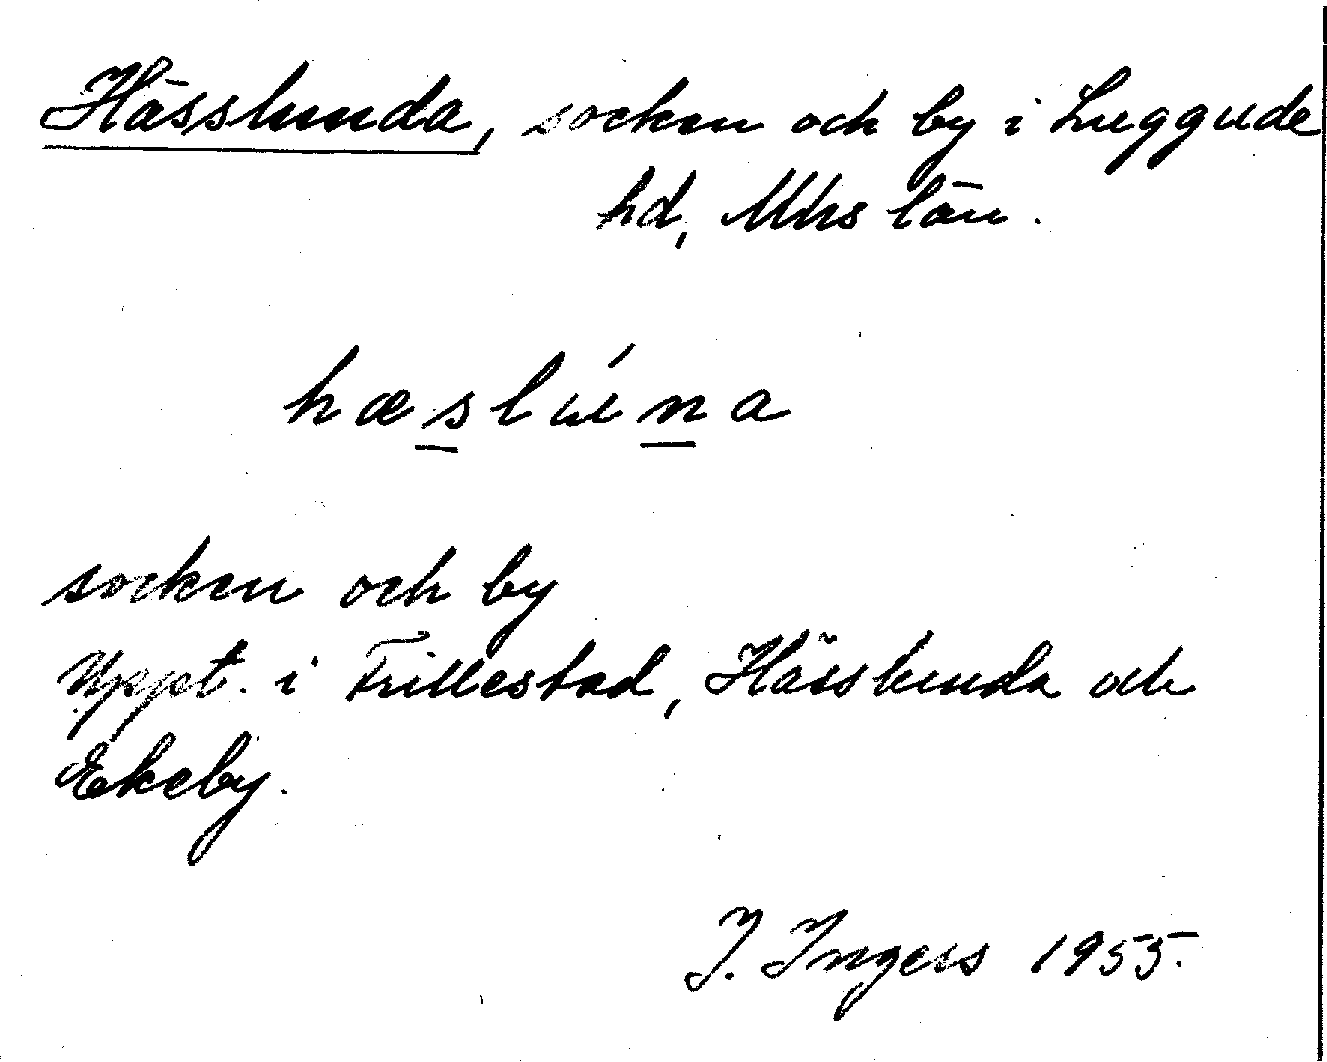 Hässlunda, socken och by i Luggude
hd, Mhs län.
hæslúna
socken och by
Uppt. i Frillestad, Hässlunda och
Ekeby.
I. Ingers 1955.